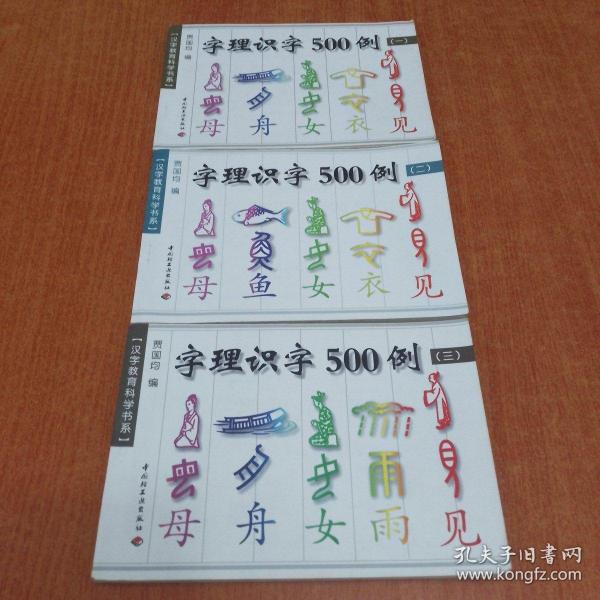 【汉字教育科学书系】
贾国均 编
字理识字500例(一)
母 舟 女 衣 见
中国轻工业出版社
【汉字教育科学书系】
贾国均 编
字理识字500例(二)
母 鱼 女 衣 见
中国轻工业出版社
【汉字教育科学书系】
贾国均 编
字理识字500例(三)
母 舟 女 雨 见
中国轻工业出版社
孔夫子旧书网
www.kongfz.com